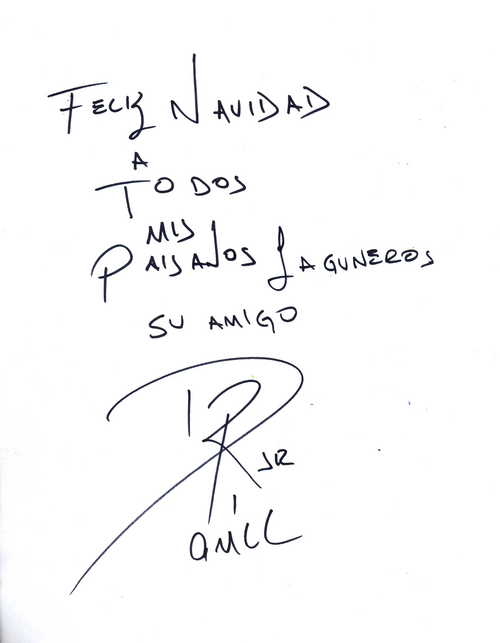 FELIZ NAVIDAD
A
TODOS
MIS
PAISANOS LAGUNEROS
SU AMIGO
DR
JR